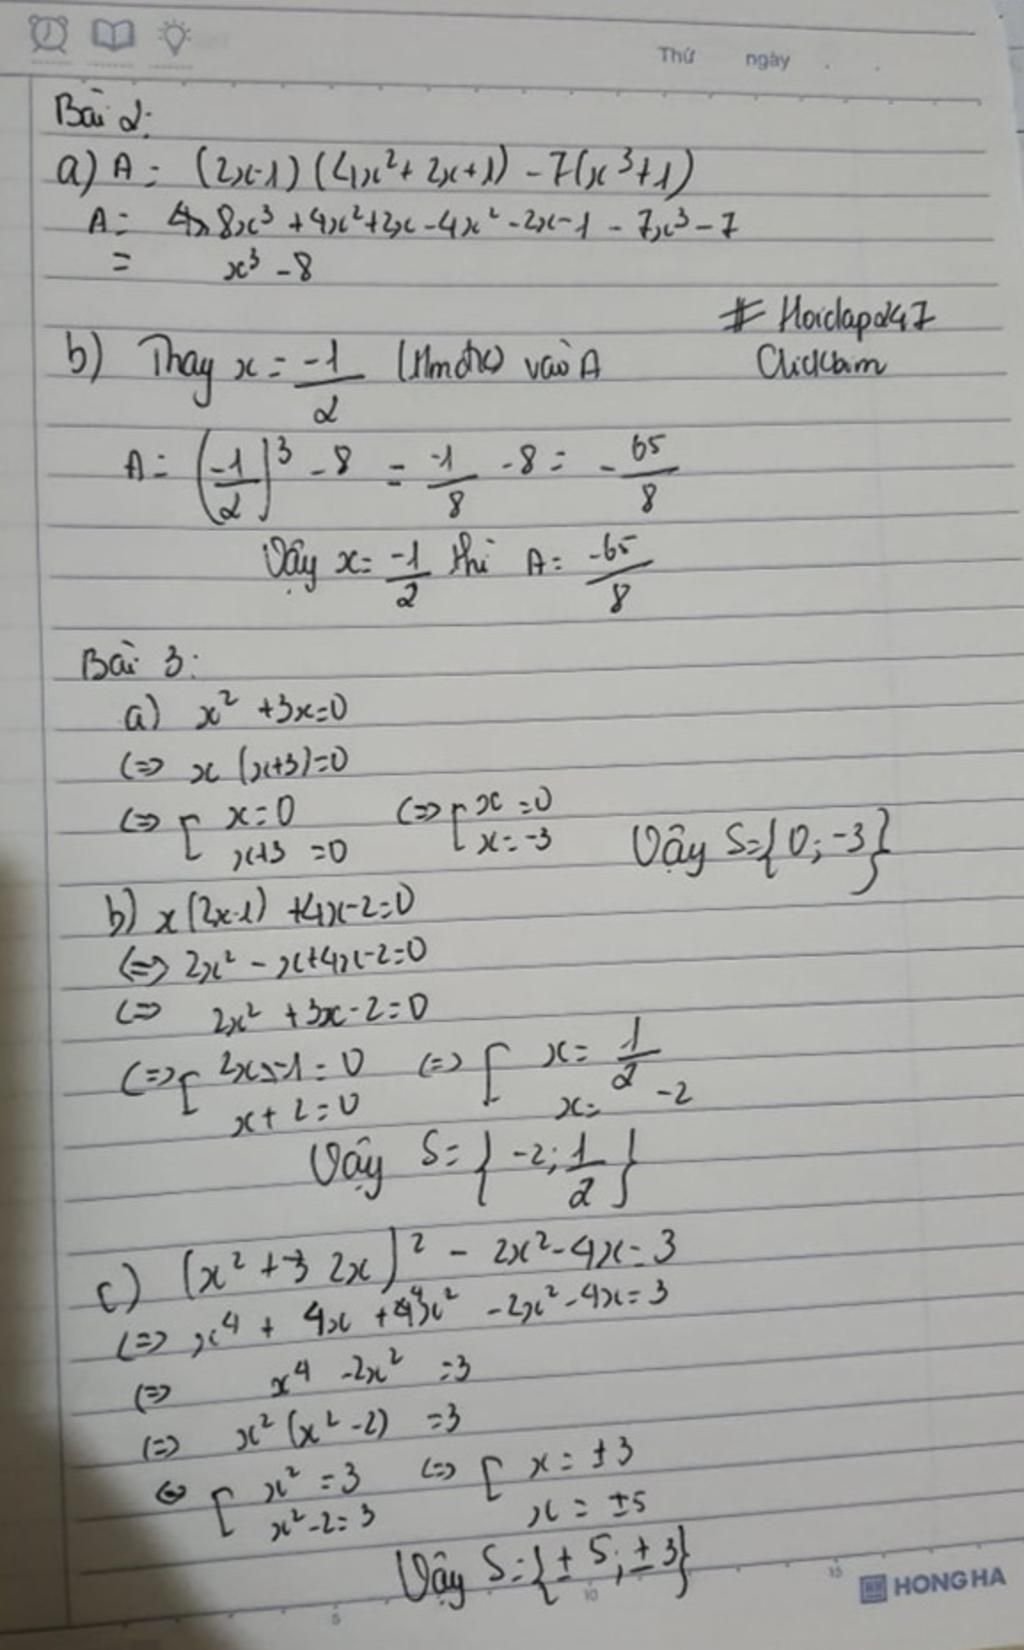 Thứ ngày
Bài 2:
a) A = (2x-1) (4x² + 2x+1) - 7(x³+1)
A = 8x³ + 4x² + 2x - 4x² - 2x - 1 - 7x³ - 7
= x³ - 8
# Hoidap247
b) Thay x = -1/2 (tmđk) vào A
A = (-1/2)³ - 8 = -1/8 - 8 = -65/8
Vậy x = -1/2 thì A = -65/8
Bài 3:
a) x² + 3x=0
(=) x (x+3)=0
(=) [ x=0 (=) [ x=0
x+3 =0 x=-3
Vậy S={0; -3}
b) x(2x-1) +4x-2=0
(=) 2x² - x+4x-2=0
(=) 2x² + 3x-2=0
(=) [ 2x-1=0 (=) [ x= 1/2
x+2=0 x= -2
Vậy S= { -2; 1/2 }
c) (x² + 2x)² - 2x² - 4x = 3
(=) x⁴ + 4x + 4x² - 2x² - 4x = 3
(=) x⁴ - 2x² = 3
(=) x² (x² - 2) = 3
(=) [ x² = 3 (=) [ x = ±3
x² - 2 = 3 x = ±5
Vậy S={± 5; ± 3}
5 10 15
HONG HA